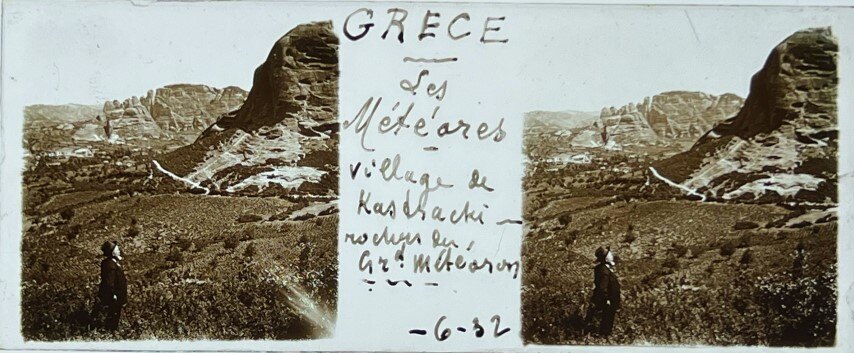 GRECE
Les
Météores
village de
Kastracki -
rochers du
Gr.d Météoron
- 6 - 32